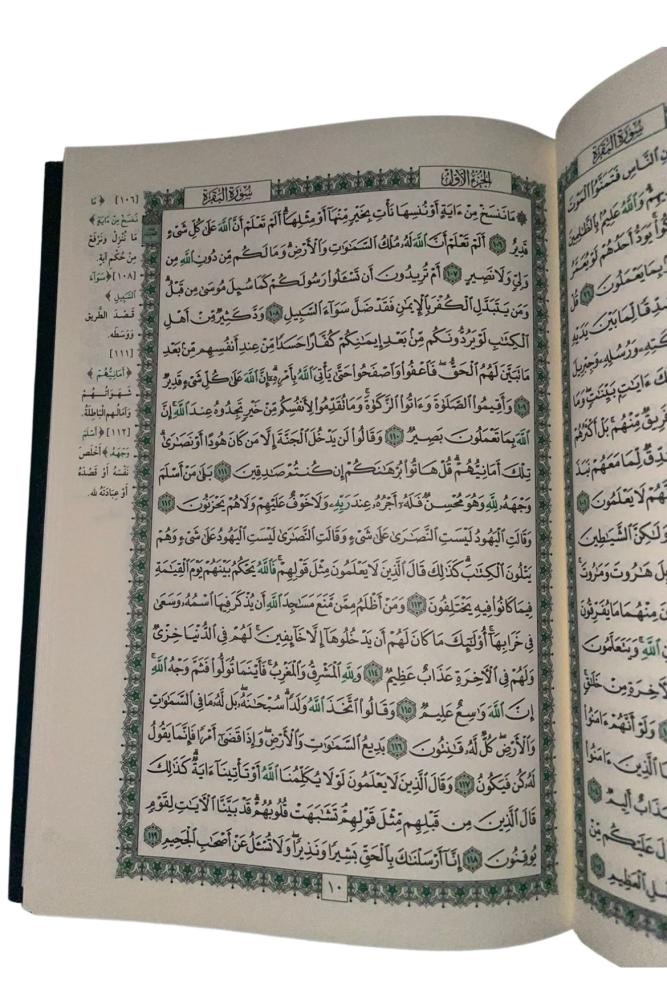 سُورَةُ البَقَرَةِ
ٱلنَّاسِ فَتَمَنَّوُا۟ ٱلْمَوْتَ
وَٱللَّهُ عَلِيمٌۢ بِٱلظَّٰلِمِينَ
يَوَدُّ أَحَدُهُمْ لَوْ يُعَمَّرُ
بِمَا يَعْمَلُونَ ٩٦ قُلْ
لِّمَا بَيْنَ يَدَيْهِ
وَرُسُلِهِۦ وَجِبْرِيلَ
ءَايَٰتٍۭ بَيِّنَٰتٍ وَمَا
مِّنْهُم بَلْ أَكْثَرُهُمْ
لِّمَا مَعَهُمْ نَبَذَ
لَا يَعْلَمُونَ ١٠١
وَلَٰكِنَّ ٱلشَّيَٰطِينَ
هَٰرُوتَ وَمَٰرُوتَ
مِنْهُمَا مَا يُفَرِّقُونَ
ٱللَّهِ وَيَتَعَلَّمُونَ
مِنْ خَلَٰقٍ
١٠٢ وَلَوْ أَنَّهُمْ ءَامَنُوا۟
ٱلَّذِينَ ءَامَنُوا۟
أَلِيمٌ
عَلَيْكُم مِّنْ
ٱلْعَظِيمِ
الجُزْءُ الأَوَّل
سُورَةُ البَقَرَةِ
مَا نَنسَخْ مِنْ ءَايَةٍ أَوْ نُنسِهَا نَأْتِ بِخَيْرٍ مِّنْهَآ أَوْ مِثْلِهَآ أَلَمْ تَعْلَمْ أَنَّ ٱللَّهَ عَلَىٰ كُلِّ شَىْءٍ
قَدِيرٌ ١٠٦ أَلَمْ تَعْلَمْ أَنَّ ٱللَّهَ لَهُۥ مُلْكُ ٱلسَّمَٰوَٰتِ وَٱلْأَرْضِ وَمَا لَكُم مِّن دُونِ ٱللَّهِ مِن
وَلِىٍّ وَلَا نَصِيرٍ ١٠٧ أَمْ تُرِيدُونَ أَن تَسْـَٔلُوا۟ رَسُولَكُمْ كَمَا سُئِلَ مُوسَىٰ مِن قَبْلُ
وَمَن يَتَبَدَّلِ ٱلْكُفْرَ بِٱلْإِيمَٰنِ فَقَدْ ضَلَّ سَوَآءَ ٱلسَّبِيلِ ١٠٨ وَدَّ كَثِيرٌ مِّنْ أَهْلِ
ٱلْكِتَٰبِ لَوْ يَرُدُّونَكُم مِّنۢ بَعْدِ إِيمَٰنِكُمْ كُفَّارًا حَسَدًا مِّنْ عِندِ أَنفُسِهِم مِّنۢ بَعْدِ
مَا تَبَيَّنَ لَهُمُ ٱلْحَقُّ فَٱعْفُوا۟ وَٱصْفَحُوا۟ حَتَّىٰ يَأْتِىَ ٱللَّهُ بِأَمْرِهِۦٓ إِنَّ ٱللَّهَ عَلَىٰ كُلِّ شَىْءٍ قَدِيرٌ
١٠٩ وَأَقِيمُوا۟ ٱلصَّلَوٰةَ وَءَاتُوا۟ ٱلزَّكَوٰةَ وَمَا تُقَدِّمُوا۟ لِأَنفُسِكُم مِّنْ خَيْرٍ تَجِدُوهُ عِندَ ٱللَّهِ إِنَّ
ٱللَّهَ بِمَا تَعْمَلُونَ بَصِيرٌ ١١٠ وَقَالُوا۟ لَن يَدْخُلَ ٱلْجَنَّةَ إِلَّا مَن كَانَ هُودًا أَوْ نَصَٰرَىٰ
تِلْكَ أَمَانِيُّهُمْ قُلْ هَاتُوا۟ بُرْهَٰنَكُمْ إِن كُنتُمْ صَٰدِقِينَ ١١١ بَلَىٰ مَنْ أَسْلَمَ
وَجْهَهُۥ لِلَّهِ وَهُوَ مُحْسِنٌ فَلَهُۥٓ أَجْرُهُۥ عِندَ رَبِّهِۦ وَلَا خَوْفٌ عَلَيْهِمْ وَلَا هُمْ يَحْزَنُونَ ١١٢
وَقَالَتِ ٱلْيَهُودُ لَيْسَتِ ٱلنَّصَٰرَىٰ عَلَىٰ شَىْءٍ وَقَالَتِ ٱلنَّصَٰرَىٰ لَيْسَتِ ٱلْيَهُودُ عَلَىٰ شَىْءٍ وَهُمْ
يَتْلُونَ ٱلْكِتَٰبَ كَذَٰلِكَ قَالَ ٱلَّذِينَ لَا يَعْلَمُونَ مِثْلَ قَوْلِهِمْ فَٱللَّهُ يَحْكُمُ بَيْنَهُمْ يَوْمَ ٱلْقِيَٰمَةِ
فِيمَا كَانُوا۟ فِيهِ يَخْتَلِفُونَ ١١٣ وَمَنْ أَظْلَمُ مِمَّن مَّنَعَ مَسَٰجِدَ ٱللَّهِ أَن يُذْكَرَ فِيهَا ٱسْمُهُۥ وَسَعَىٰ
فِى خَرَابِهَآ أُو۟لَٰٓئِكَ مَا كَانَ لَهُمْ أَن يَدْخُلُوهَآ إِلَّا خَآئِفِينَ لَهُمْ فِى ٱلدُّنْيَا خِزْىٌ
وَلَهُمْ فِى ٱلْءَاخِرَةِ عَذَابٌ عَظِيمٌ ١١٤ وَلِلَّهِ ٱلْمَشْرِقُ وَٱلْمَغْرِبُ فَأَيْنَمَا تُوَلُّوا۟ فَثَمَّ وَجْهُ ٱللَّهِ
إِنَّ ٱللَّهَ وَٰسِعٌ عَلِيمٌ ١١٥ وَقَالُوا۟ ٱتَّخَذَ ٱللَّهُ وَلَدًا سُبْحَٰنَهُۥ بَل لَّهُۥ مَا فِى ٱلسَّمَٰوَٰتِ
وَٱلْأَرْضِ كُلٌّ لَّهُۥ قَٰنِتُونَ ١١٦ بَدِيعُ ٱلسَّمَٰوَٰتِ وَٱلْأَرْضِ وَإِذَا قَضَىٰٓ أَمْرًا فَإِنَّمَا يَقُولُ
لَهُۥ كُن فَيَكُونُ ١١٧ وَقَالَ ٱلَّذِينَ لَا يَعْلَمُونَ لَوْلَا يُكَلِّمُنَا ٱللَّهُ أَوْ تَأْتِينَآ ءَايَةٌ كَذَٰلِكَ
قَالَ ٱلَّذِينَ مِن قَبْلِهِم مِّثْلَ قَوْلِهِمْ تَشَٰبَهَتْ قُلُوبُهُمْ قَدْ بَيَّنَّا ٱلْءَايَٰتِ لِقَوْمٍ
يُوقِنُونَ ١١٨ إِنَّآ أَرْسَلْنَٰكَ بِٱلْحَقِّ بَشِيرًا وَنَذِيرًا وَلَا تُسْـَٔلُ عَنْ أَصْحَٰبِ ٱلْجَحِيمِ ١١٩
١٠
[١٠٦] ﴿مَا
نَنسَخْ مِنْ ءَايَةٍ﴾
مَا نُنْزِلْ وَنَرْفَعْ
مِنْ حُكْمِ آيَةٍ.
[١٠٨] ﴿سَوَآءَ
ٱلسَّبِيلِ﴾
قَصْدَ الطَّرِيقِ
وَوَسَطَهُ.
[١١١]
﴿أَمَانِيُّهُمْ﴾
شَهَوَاتُهُمْ
وَآمَالُهُم الْبَاطِلَةُ.
[١١٢] ﴿أَسْلَمَ
وَجْهَهُۥ﴾ أَخْلَصَ
نَفْسَهُ أَوْ قَصْدَهُ
أَوْ عِبَادَتَهُ لله.